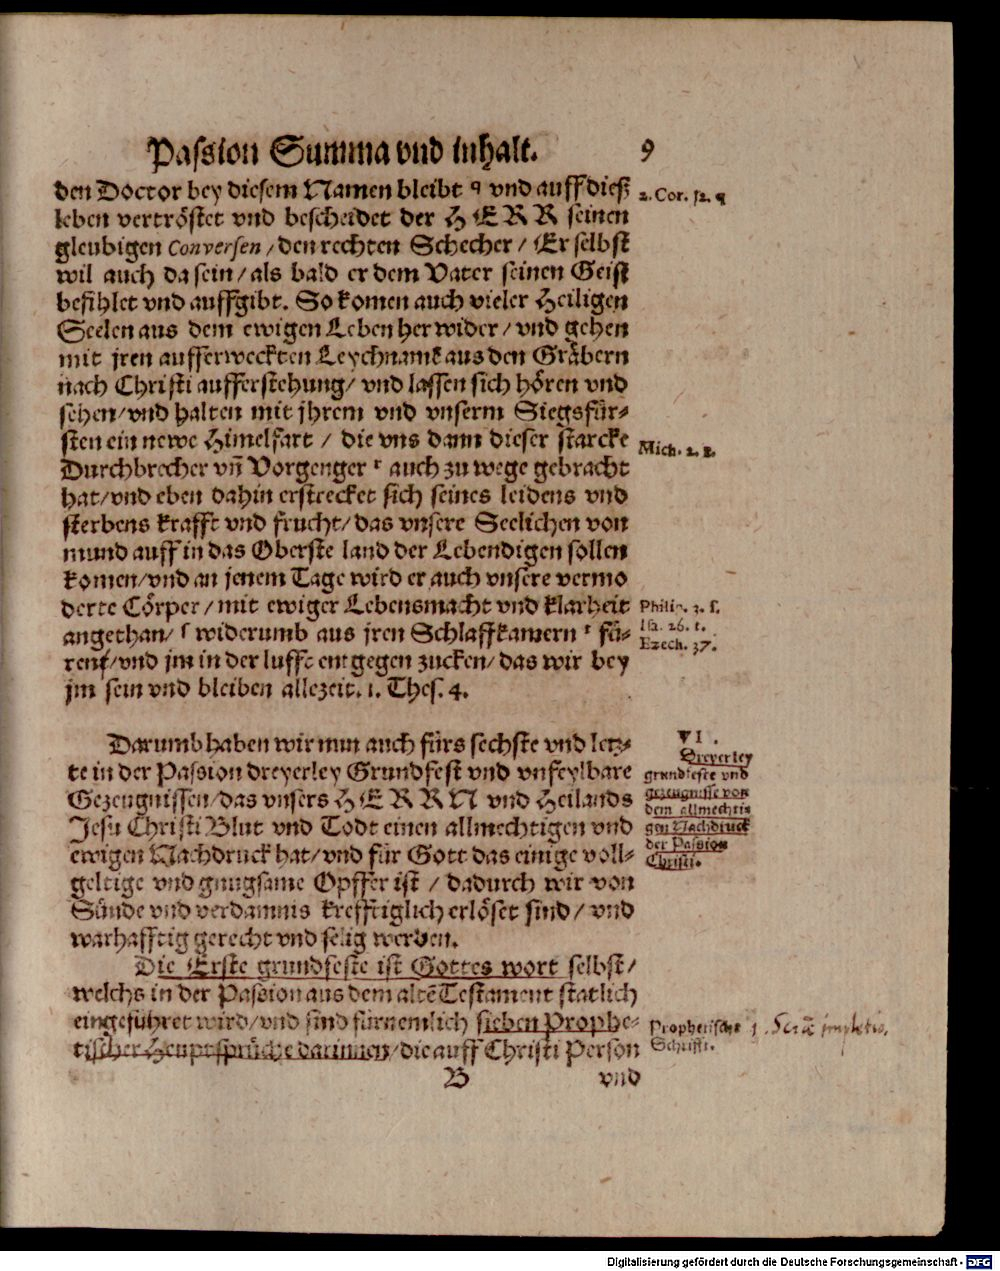 Passion Summa vnd inhalt. 9
den Doctor bey diesem Namen bleibt q vnd auff dieß
2. Cor. 12. q
leben vertröstet vnd bescheidet der HERR seinen
gleubigen Conversen / den rechten Schecher / Er selbst
wil auch da sein / als bald er dem Vater seinen Geist
befihlet vnd auffgibt. So komen auch vieler Heiligen
Seelen aus dem ewigen Leben herwider / vnd gehen
mit jren aufferweckten Leychnamẽ aus den Gräbern
nach Christi aufferstehung / vnd lassen sich hören vnd
sehen / vnd halten mit jhrem vnd vnserm Siegsfür-
sten ein newe Himelfart / die vns dann dieser starcke
Mich. 2. r.
Durchbrecher vñ Vorgenger r auch zu wege gebracht
hat / vnd eben dahin erstrecket sich seines leidens vnd
sterbens krafft vnd frucht / das vnsere Seelichen von
mund auff in das Oberste land der Lebendigen sollen
komen / vnd an jenem Tage wird er auch vnsere vermo
derte Cörper / mit ewiger Lebensmacht vnd klarheit
Philip. 3. s.
angethan / s widerumb aus jren Schlaffkamern t fü-
Isa. 26. t.
Ezech. 37.
ren / vnd jm in der lufft entgegen zucken / das wir bey
jm sein vnd bleiben allezeit. 1. Thes. 4.
Darumb haben wir nun auch fürs sechste vnd letz-
te in der Passion dreyerley Grundfest vnd vnfeylbare
Gezeugnissen / das vnsers HERRN vnd Heilands
Jesu Christi Blut vnd Todt einen allmechtigen vnd
ewigen Nachdruck hat / vnd für Gott das einige voll-
geltige vnd gnugsame Opffer ist / dadurch wir von
Sünde vnd verdamnis krefftiglich erlöset sind / vnd
warhafftig gerecht vnd selig werden.
VI.
Dreyerley
grundfeste vnd
gezeugnisse von
dem allmechti-
gen Nachdruck
der Passion
Christi.
Die Erste grundfeste ist Gottes wort selbst /
welchs in der Passion aus dem altẽ Testament statlich
eingeführet wird / vnd sind fürnemlich sieben Prophe-
tischer Heuptsprüche darinnen / die auff Christi Person
Prophetische
Schrifft.
1.
B vnd
Digitalisierung gefördert durch die Deutsche Forschungsgemeinschaft - DFG